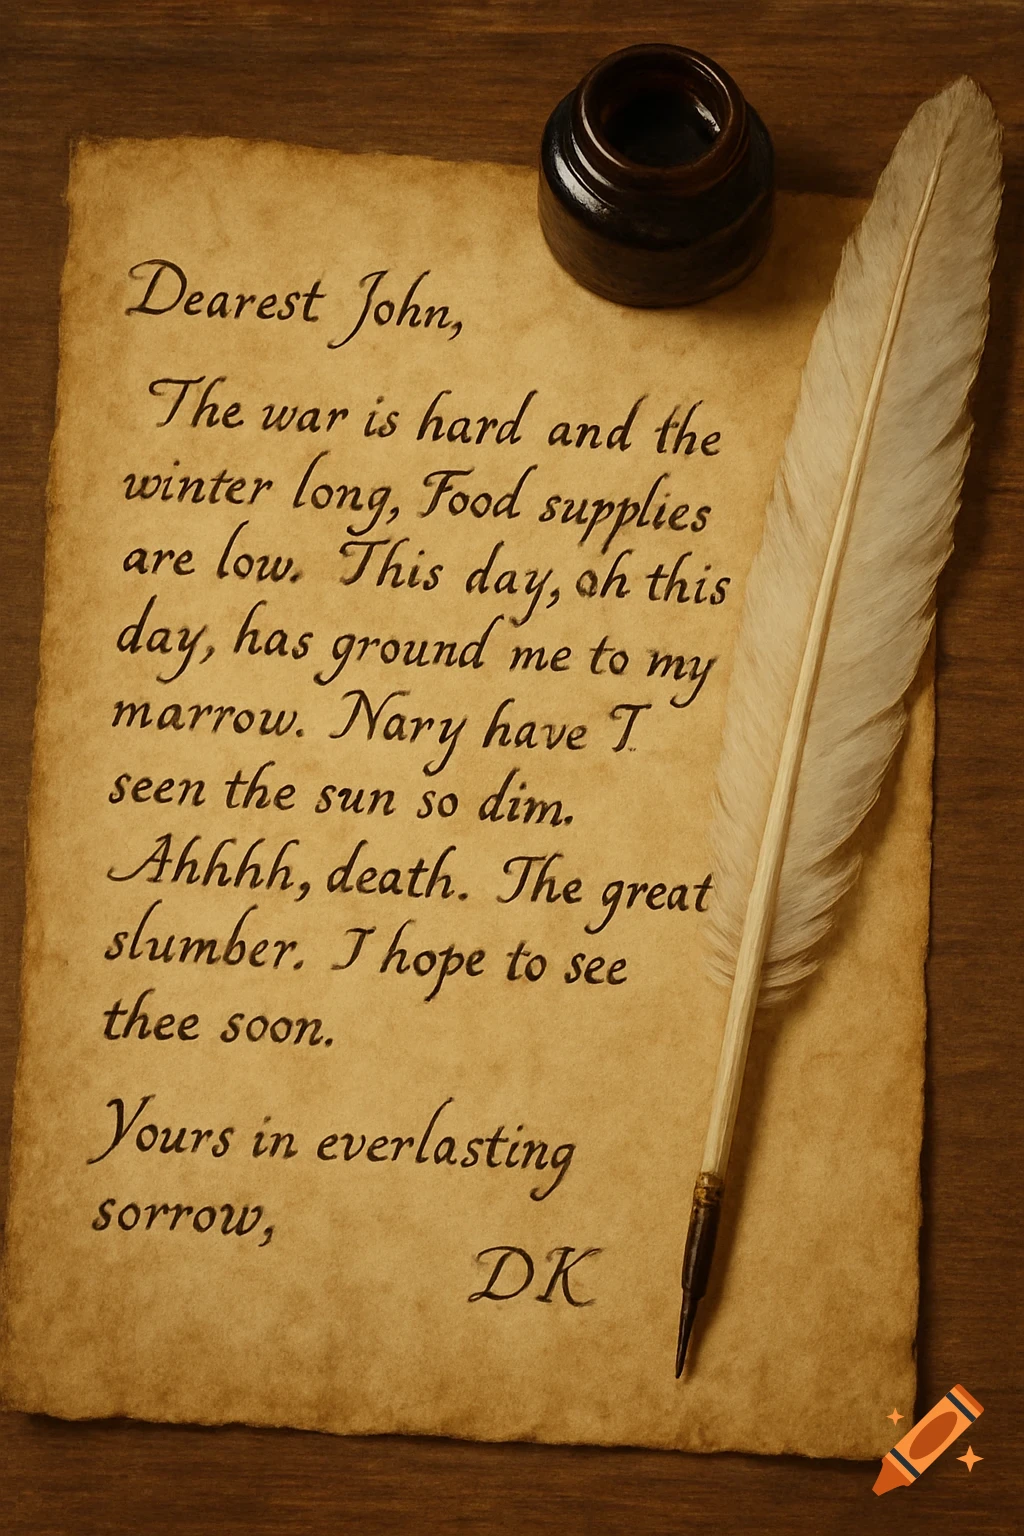 Dearest John,
The war is hard and the
winter long, Food supplies
are low. This day, oh this
day, has ground me to my
marrow. Nary have I
seen the sun so dim.
Ahhhh, death. The great
slumber. I hope to see
thee soon.
Yours in everlasting
sorrow,
DK